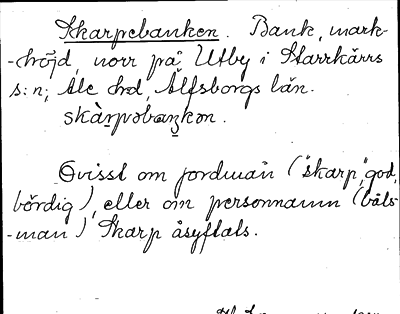 Skarpebanken. Bank, mark-
-höjd, norr på Utby i Starrkärrs
s:n, Ale hd, Älfsborgs län.
skàrpəbaŋkən.
Ovisst om jordmån ("skarp," god,
bördig), eller om personnamn (båts-
-man) Skarp åsyftats.